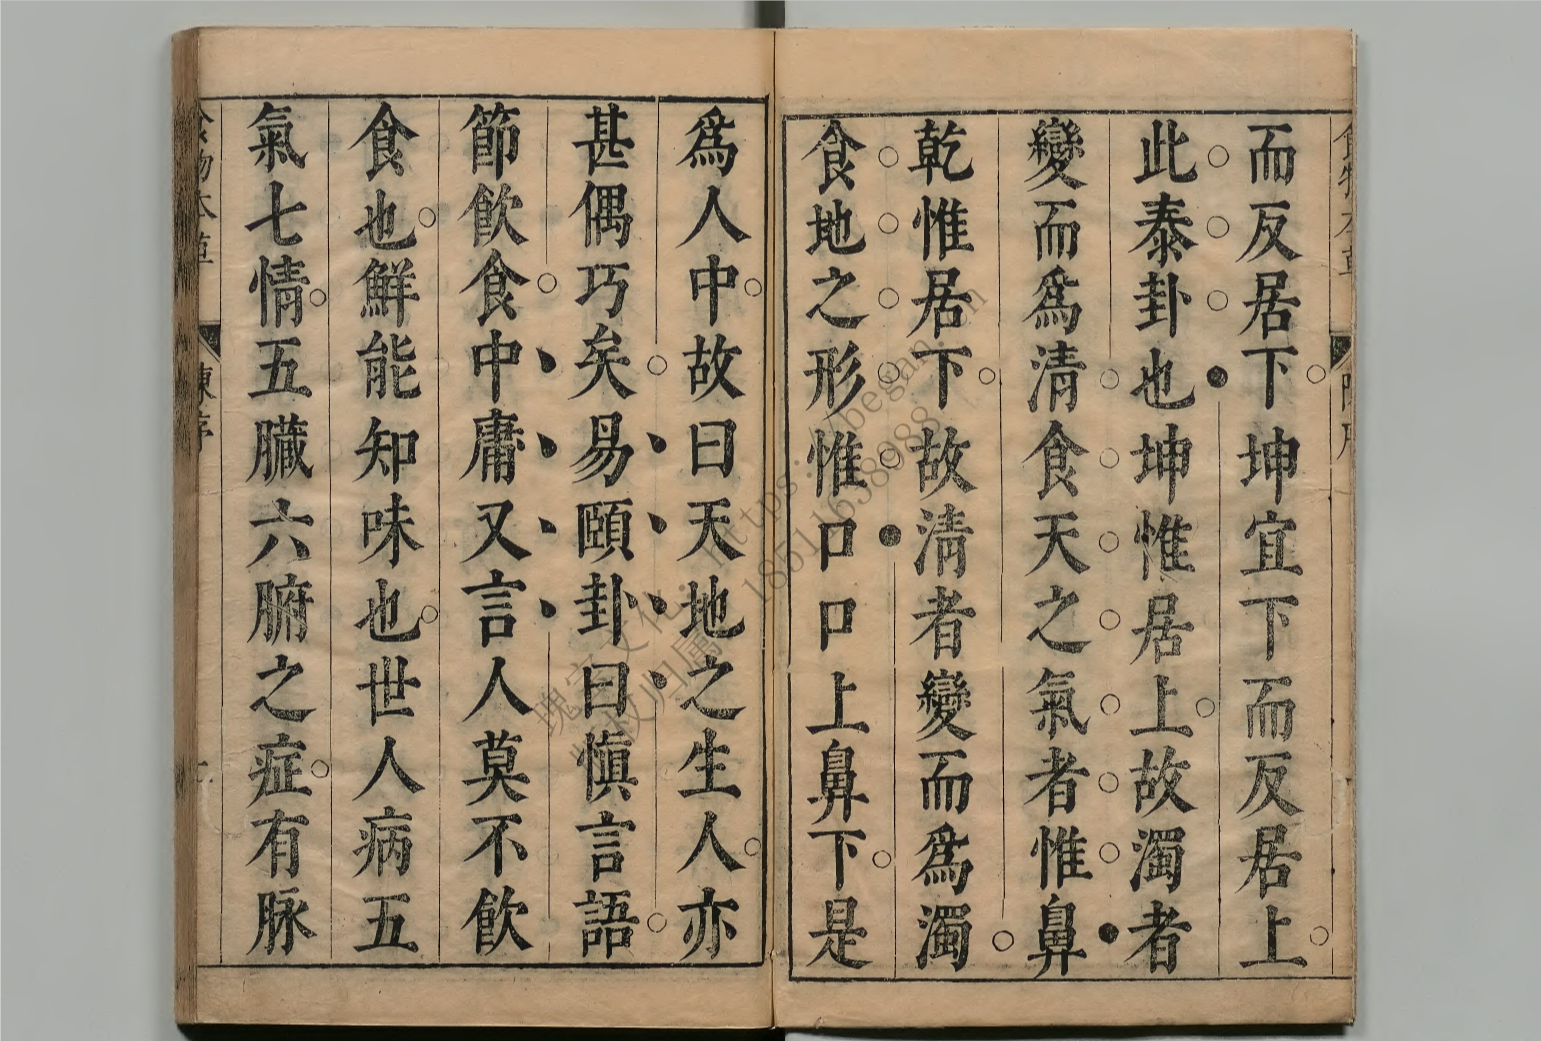 而反居下坤宜下而反居上
此泰卦也坤惟居上故濁者
變而爲清食天之氣者惟鼻
乾惟居下故清者變而爲濁
食地之形惟口口上鼻下是
爲人中故曰天地之生人亦
甚偶巧矣易頤卦曰慎言語
節飲食中庸又言人莫不飲
食也鮮能知味也世人病五
氣七情五臟六腑之症有脉